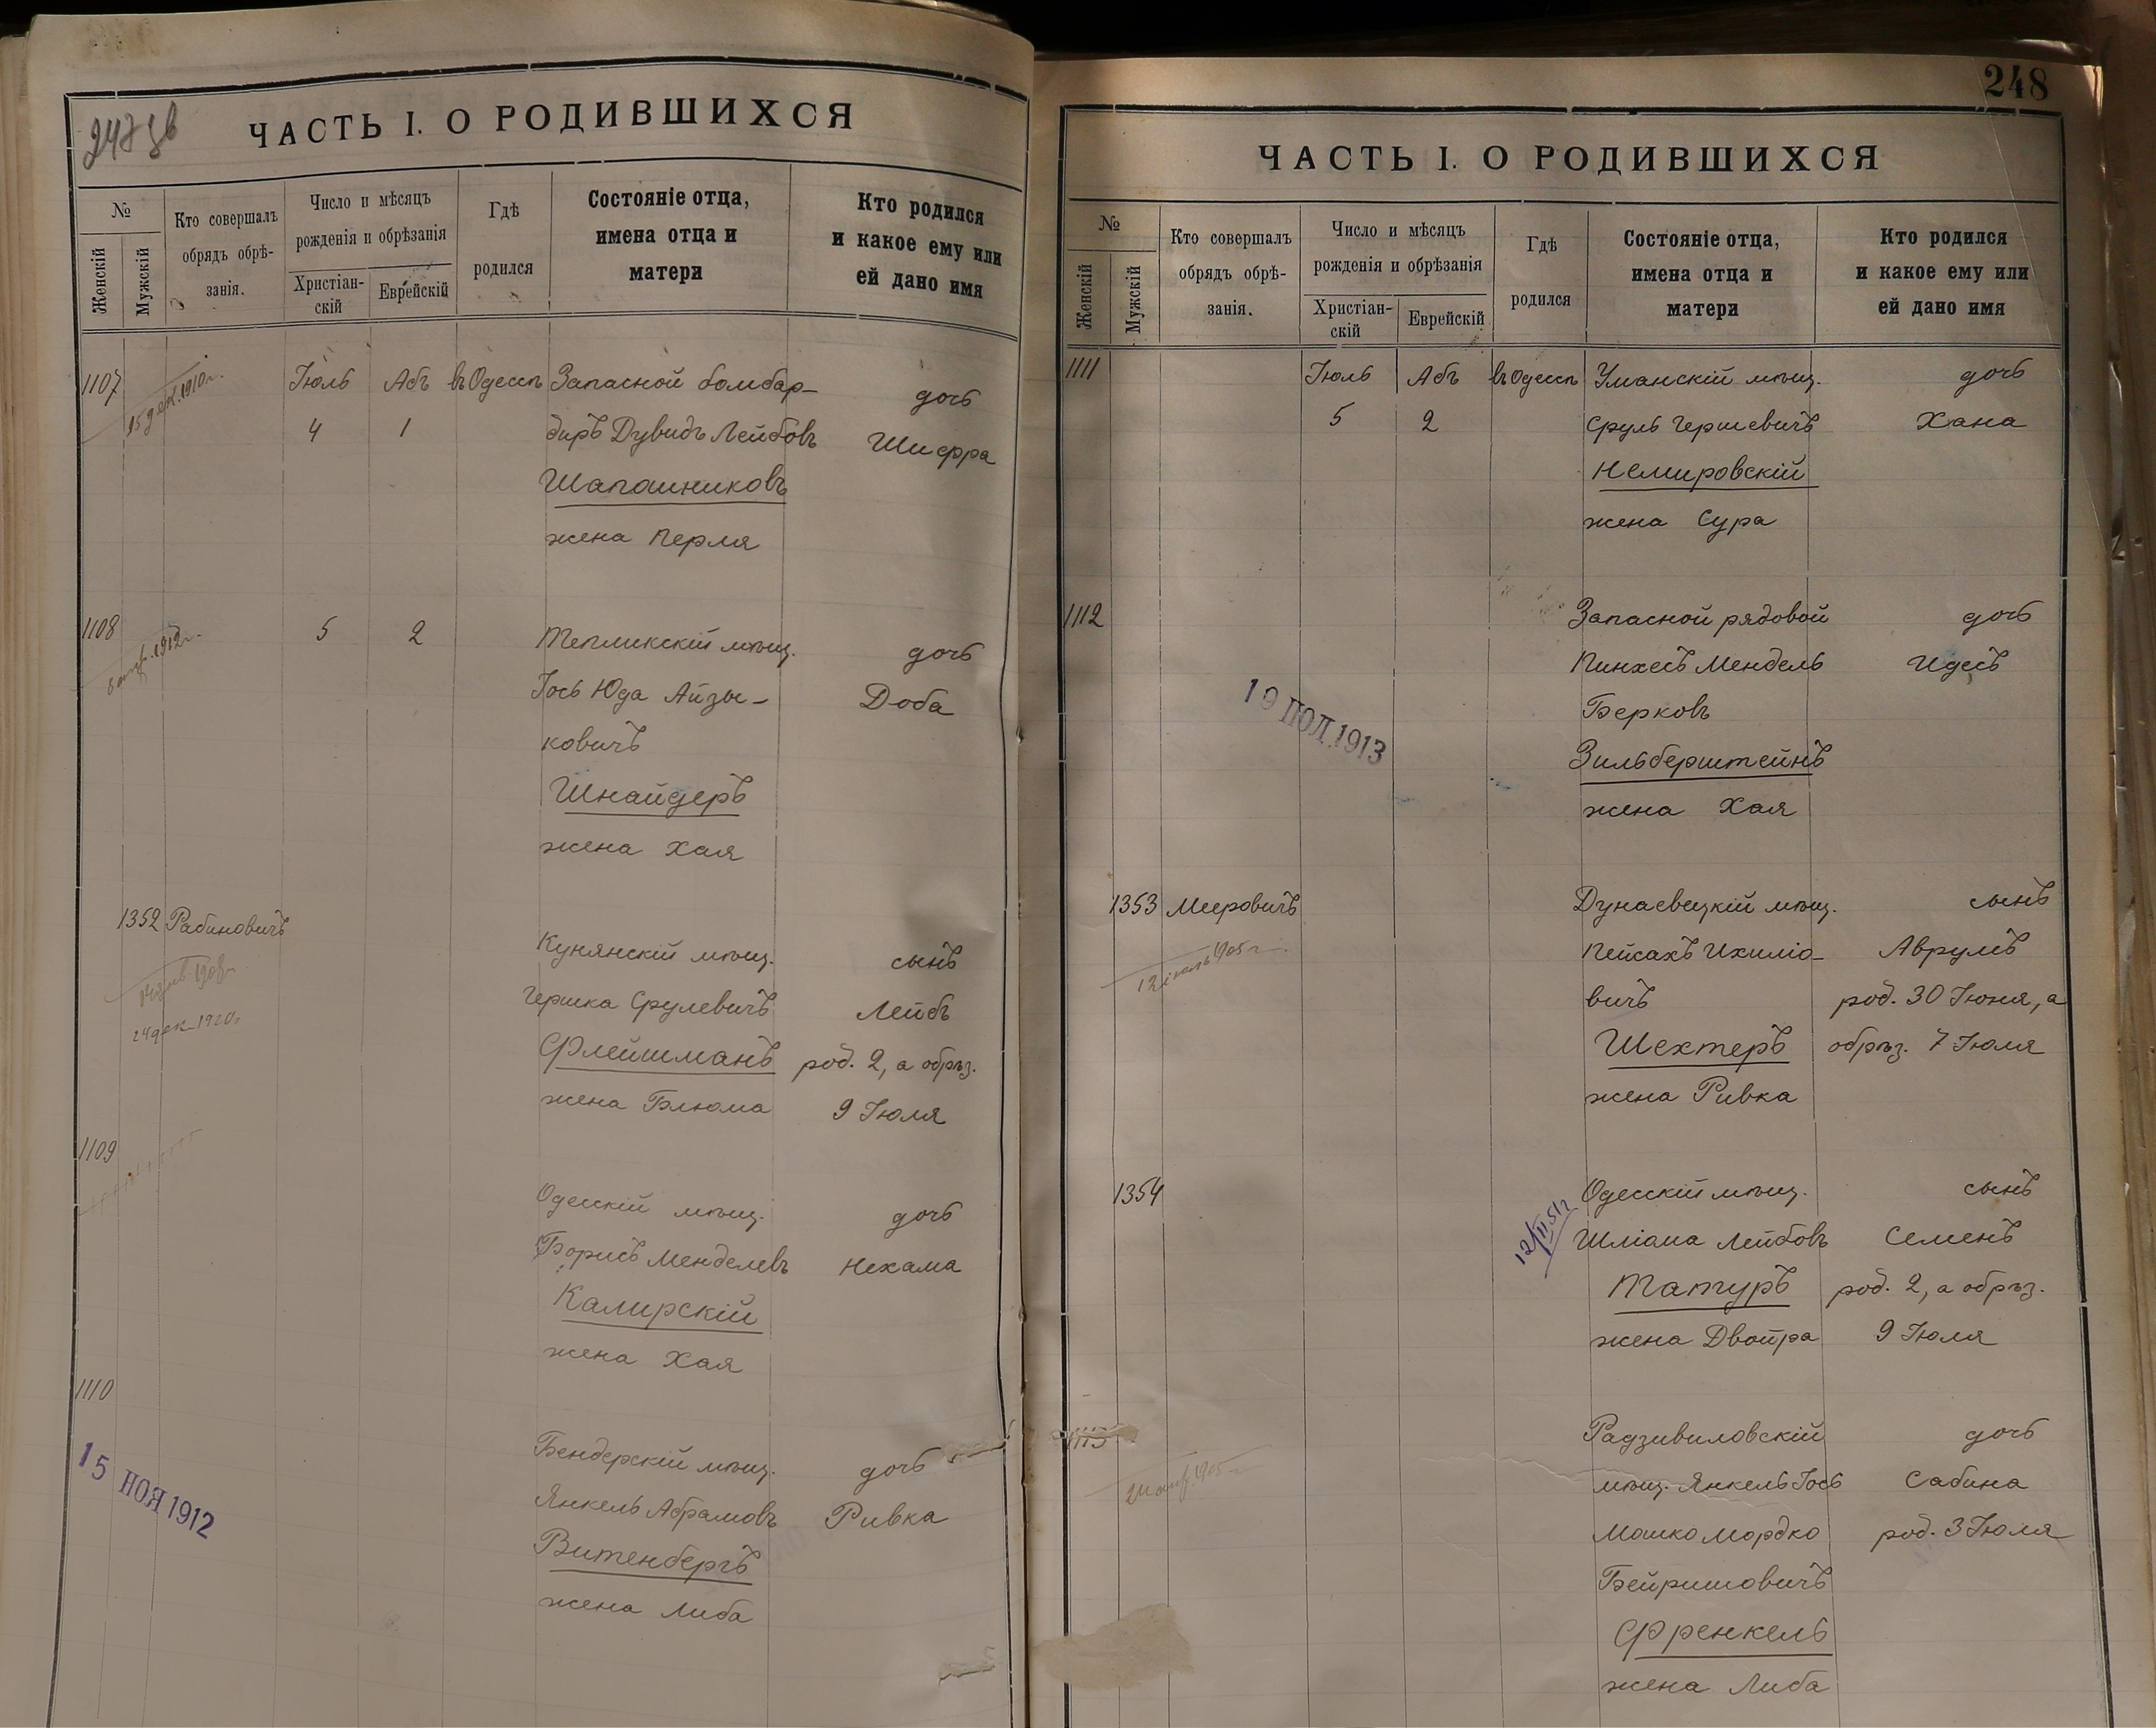 ЧАСТЬ I. О РОДИВШИХСЯ
№
Женскій
Мужскій
Кто совершалъ
обрядъ обрѣ-
занія.
Число и мѣсяцъ
рожденія и обрѣзанія
Христіан-
скій
Еврейскій
Гдѣ
родился
Состояніе отца,
имена отца и
матери
Кто родился
и какое ему или
ей дано имя
1107 15 дек. 1910 г. Іюль Абъ въ Одессѣ Запасной бомбар- дочь
4 1 диръ Дувидъ Лейбовъ Шифра
Шапошниковъ
жена Перля
1108 1912 г. 5 2 Тепликскій мѣщ. дочь
Іось Юда Айзы- Доба
ковичъ
Шнайдеръ
жена Хая
1352 Рабиновичъ Кунянскій мѣщ. сынъ
24 дек. 1920 г. Гершка Срулевичъ Лейбъ
Флейшманъ род. 2, а обрѣз.
жена Блюма 9 Іюля
1109
Одесскій мѣщ. дочь
Борисъ Менделевъ Нехама
Калирскій
жена Хая
1110
Бендерскій мѣщ. дочь
15 НОЯ 1912 Янкель Абрамовъ Ривка
Витенбергъ
жена Либа
248
ЧАСТЬ I. О РОДИВШИХСЯ
№
Женскій
Мужскій
Кто совершалъ
обрядъ обрѣ-
занія.
Число и мѣсяцъ
рожденія и обрѣзанія
Христіан-
скій
Еврейскій
Гдѣ
родился
Состояніе отца,
имена отца и
матери
Кто родился
и какое ему или
ей дано имя
1111 Іюль Абъ въ Одессѣ Уманскій мѣщ. дочь
5 2 Сруль Гершевичъ Хана
Немировскій
жена Сура
1112 Запасной рядовой дочь
Пинхесъ Мендель Идесъ
19 ІЮЛ. 1913 Берковъ
Зильберштейнъ
жена Хая
1353 Мееровичъ Дунаевецкій мѣщ. сынъ
12 1905 г. Пейсахъ Ихиліо- Аврумъ
вичъ род. 30 Іюня, а
Шехтеръ обрѣз. 7 Іюля
жена Ривка
1354 Одесскій мѣщ. сынъ
12/II 51 г Шліома Лейбовъ Семенъ
Татуръ род. 2, а обрѣз.
жена Двойра 9 Іюля
1113 Радзивиловскій дочь
1905 мѣщ. Янкель Іось Сабина
Мошко Мордко род. 3 Іюля
Бейришовичъ
Френкель
жена Либа